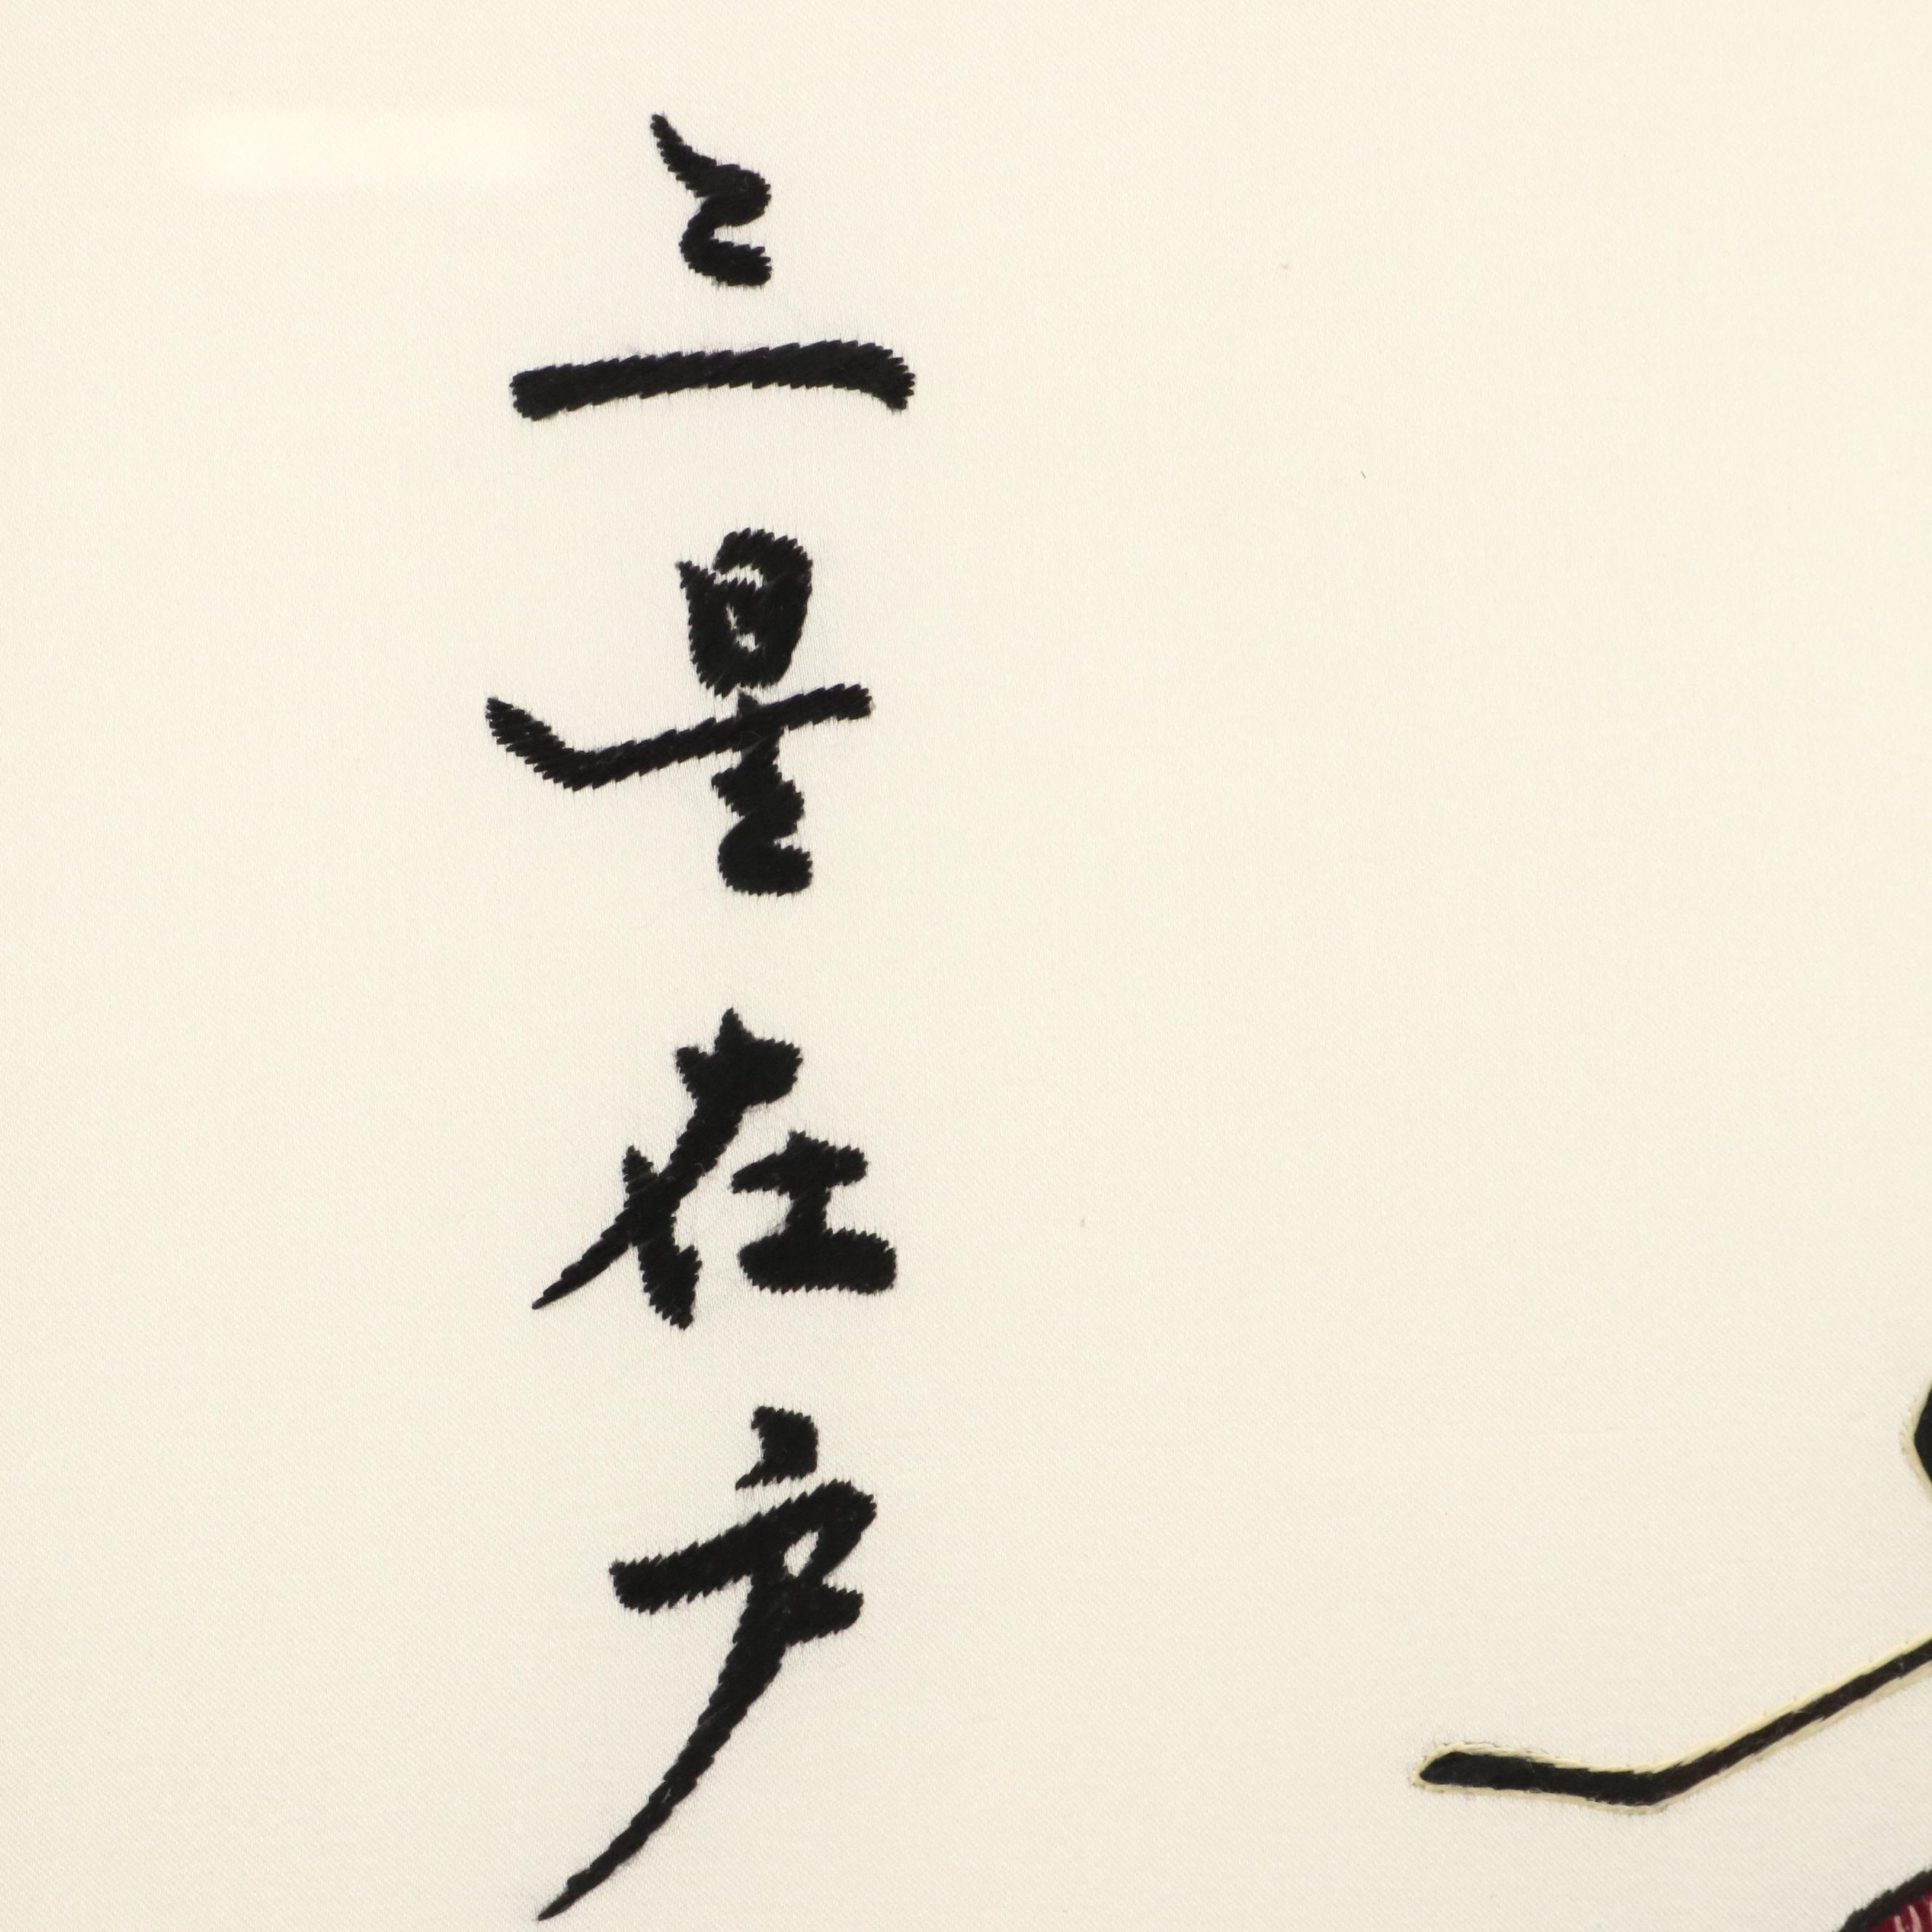 三星在户